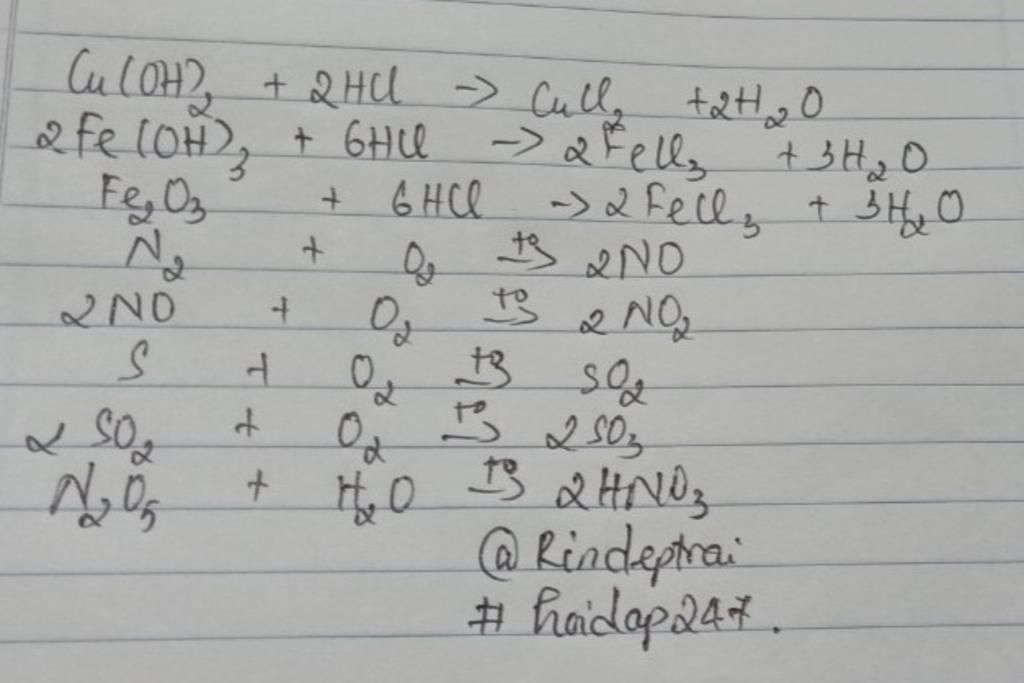 Cu(OH)₂ + 2HCl -> CuCl₂ +2H₂O
2Fe(OH)₃ + 6HCl -> 2FeCl₃ +3H₂O
Fe₂O₃ + 6HCl -> 2FeCl₃ + 3H₂O
N₂ + O₂ t°→ 2NO
2NO + O₂ t°→ 2NO₂
S + O₂ t°→ SO₂
2SO₂ + O₂ t°→ 2SO₃
N₂O₅ + H₂O t°→ 2HNO₃
@Rindeptrai
# hoidap247.